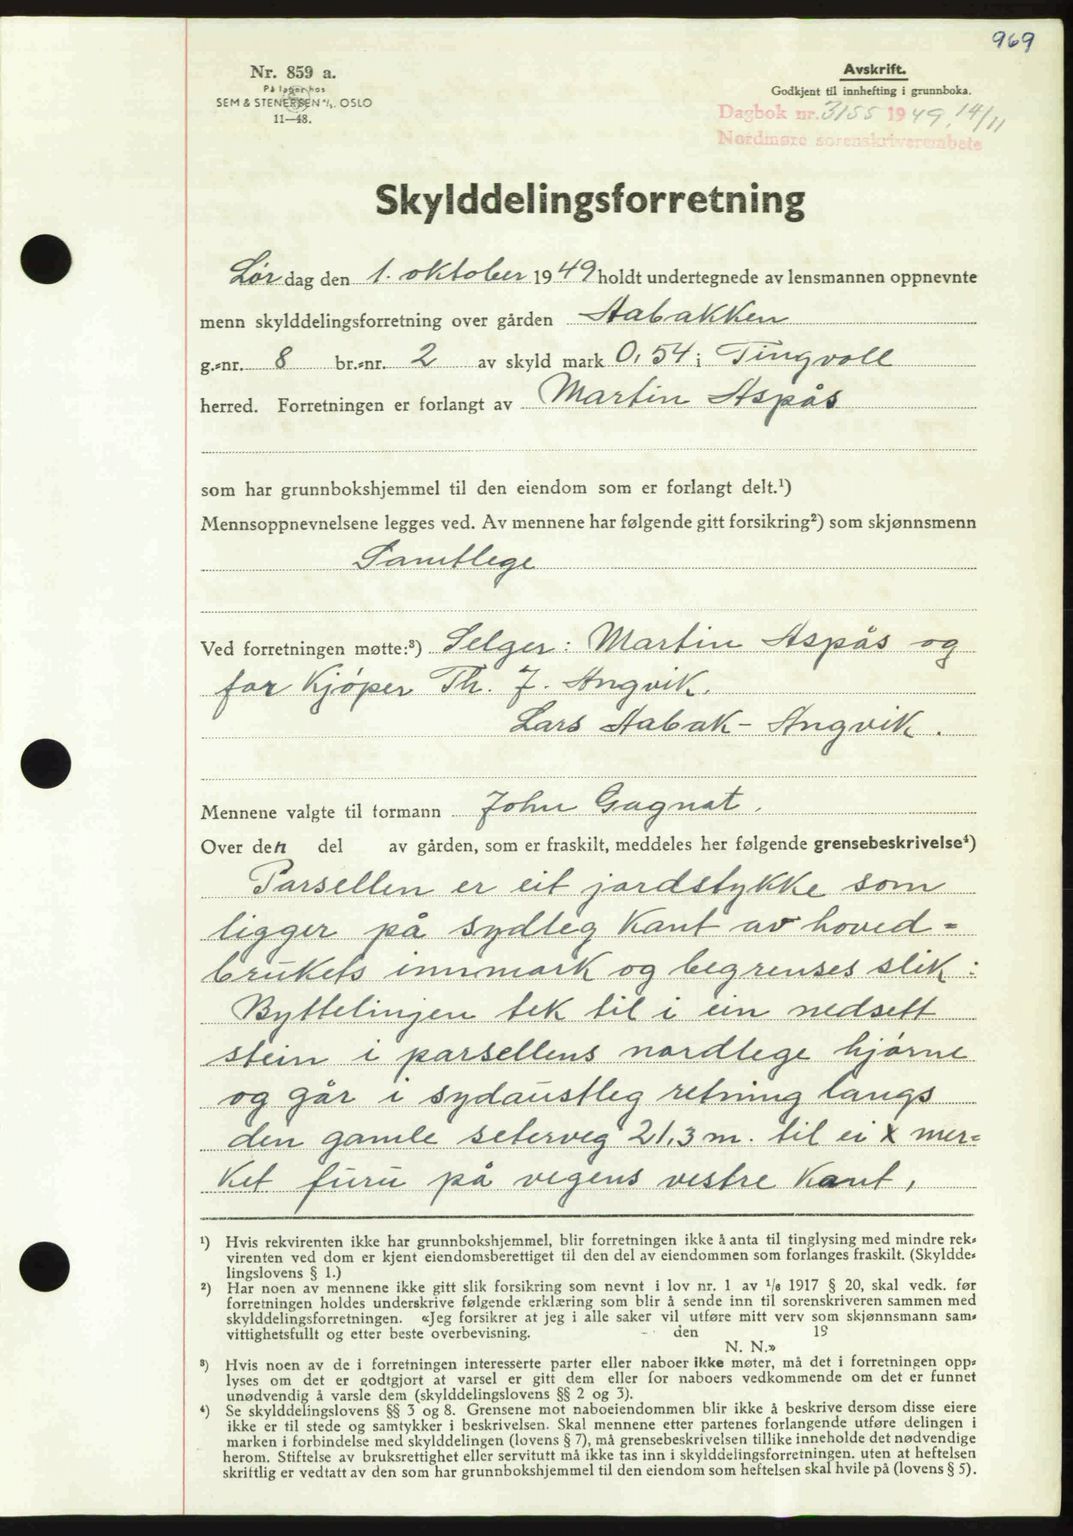 969
Nr. 859 a.
På lager hos
SEM & STENERSEN A/S. OSLO
11—48.
Avskrift.
Godkjent til innhefting i grunnboka.
Dagbok nr. 3155 1949, 14/11
Nordmøre sorenskriverembete
Skylddelingsforretning
Lørdag den 1. oktober 1949 holdt undertegnede av lensmannen oppnevnte
menn skylddelingsforretning over gården Aabakken
g.-nr. 8 br.-nr. 2 av skyld mark 0,54 i Tingvoll
herred. Forretningen er forlangt av Martin Aspås
som har grunnbokshjemmel til den eiendom som er forlangt delt.¹)
Mennsoppnevnelsene legges ved. Av mennene har følgende gitt forsikring²) som skjønnsmenn
Samtlege
Ved forretningen møtte:³) Selger: Martin Aspås og
for Kjøper Th. J. Angvik.
Lars Aabak - Angvik.
Mennene valgte til formann John Gagnat.
Over den del av gården, som er fraskilt, meddeles her følgende grensebeskrivelse⁴)
Parsellen er eit jordstykke som
ligger på sydleg kant av hoved=
brukets innmark og begrenses slik:
Byttelinjen tek til i ein nedsett
stein i parsellens nordlege hjørne
og går i sydaustleg retning langs
den gamle seterveg 21,3 m. til ei x mer=
ket furu på vegens vestre kant,
¹) Hvis rekvirenten ikke har grunnbokshjemmel, blir forretningen ikke å anta til tinglysing med mindre rek-
virenten ved dom er kjent eiendomsberettiget til den del av eiendommen som forlanges fraskilt. (Skyldde-
lingslovens § 1.)
²) Har noen av mennene ikke gitt slik forsikring som nevnt i lov nr. 1 av 1/6 1917 § 20, skal vedk. før
forretningen holdes underskrive følgende erklæring som blir å sende inn til sorenskriveren sammen med
skylddelingsforretningen. «Jeg forsikrer at jeg i alle saker vil utføre mitt verv som skjønnsmann sam-
vittighetsfullt og etter beste overbevisning. den 19
N. N.»
³) Hvis noen av de i forretningen interesserte parter eller naboer ikke møter, må det i forretningen opp-
lyses om det er godtgjort at varsel er gitt dem eller for naboers vedkommende om det er funnet
unødvendig å varsle dem (skylddelingslovens §§ 2 og 3).
⁴) Se skylddelingslovens §§ 3 og 8. Grensene mot naboeiendommen blir ikke å beskrive dersom disse eiere
ikke er til stede og samtykker i beskrivelsen. Skal mennene etter partenes forlangende utføre delingen i
marken i forbindelse med skylddelingen (lovens § 7), må grensebeskrivelsen tillike inneholde det nødvendige
herom. Stiftelse av bruksrettighet eller servitutt må ikke tas inn i skylddelingsforretningen. uten at heftelsen
skriftlig er vedtatt av den som har grunnbokshjemmel til den eiendom som heftelsen skal hvile på (lovens § 5).